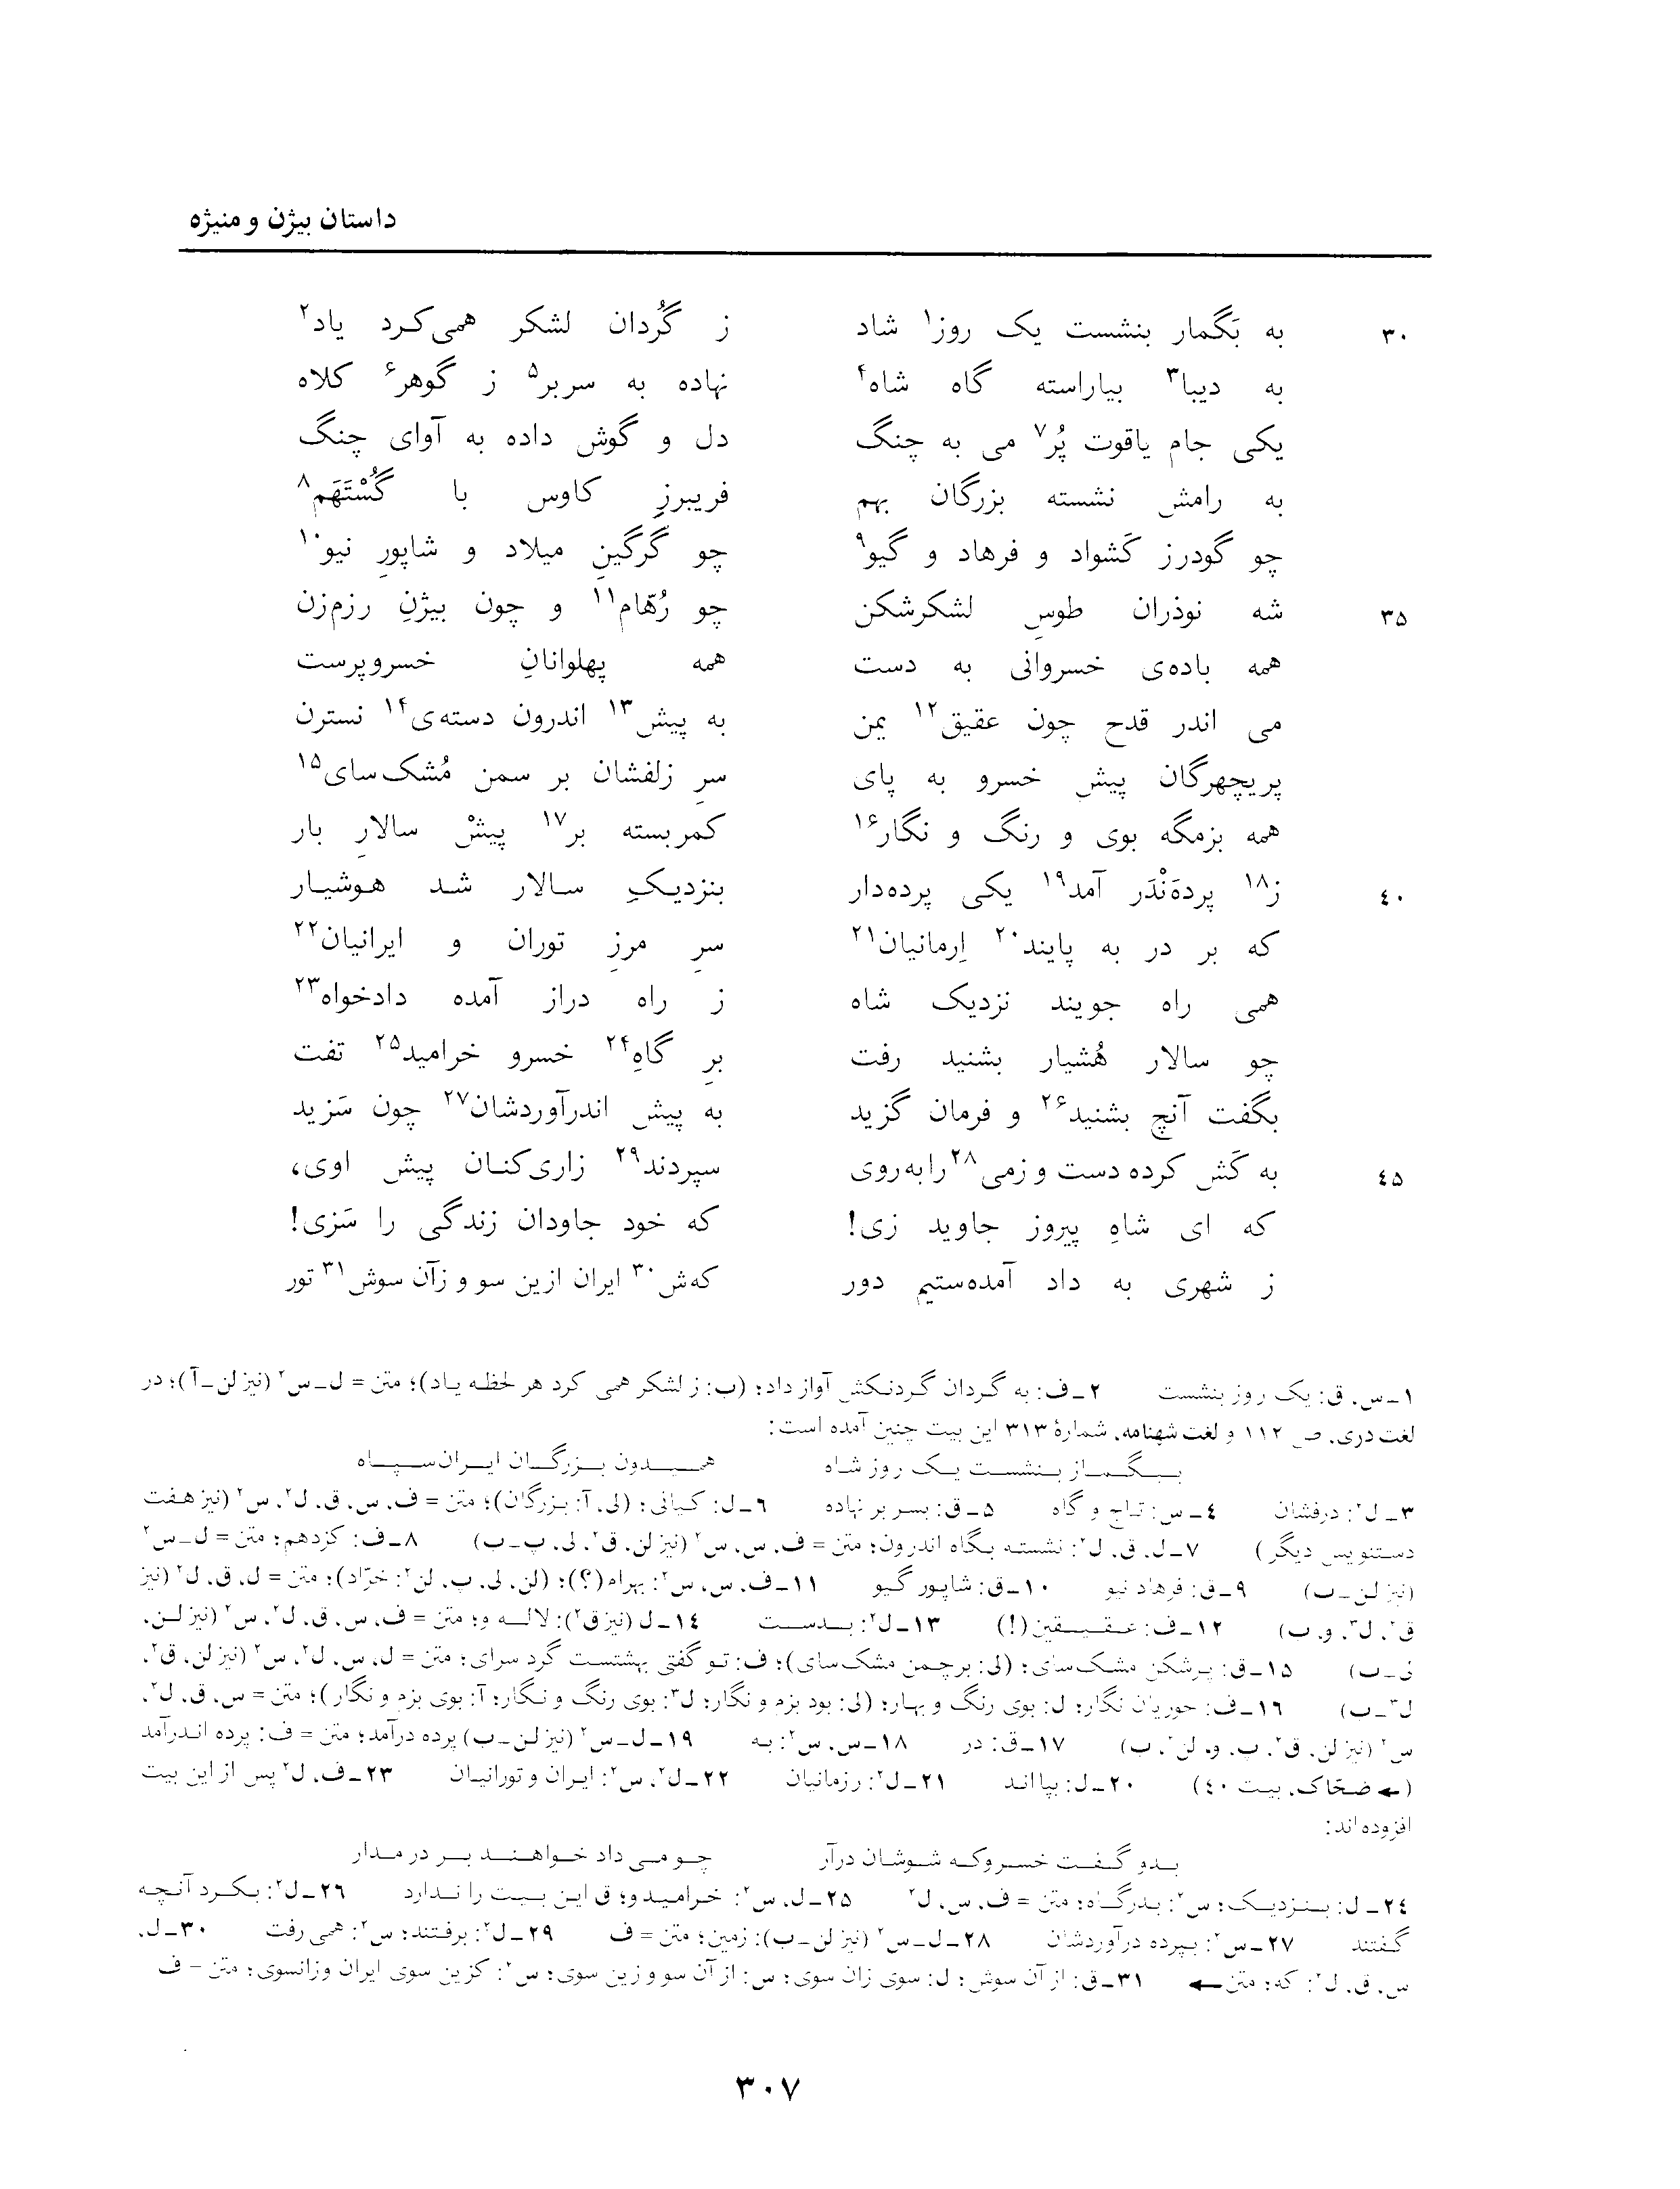 داستان بیژن و منیژه
۳۰ به بَگمار بنشست یک روز۱ شاد ز گُردان لشکر همی‌کرد یاد۲
به دیبا۳ بیاراسته گاه شاه۴ نهاده به سر بر۵ ز گوهر۶ کلاه
یکی جام یاقوت پُر۷ می به چنگ دل و گوش داده به آوای چنگ
به رامش نشسته بزرگان بهم فریبرزِ کاوس با گُسْتَهَم۸
چو گودرز کَشواد و فرهاد و گیو۹ چو گرگینِ میلاد و شاپورِ نیو۱۰
۳۵ شه نوذران طوسِ لشکرشکن چو رُهّام۱۱ و چون بیژنِ رزم‌زن
همه باده‌ی خسروانی به دست همه پهلوانانِ خسروپرست
می اندر قدح چون عقیق۱۲ یمن به پیش۱۳ اندرون دسته‌ی۱۴ نسترن
پریچهرگان پیش خسرو به پای سرِ زلفشان بر سمن مُشک‌سای۱۵
همه بزمگه بوی و رنگ و نگار۱۶ کمر بسته بر۱۷ پیشْ سالارِ بار
۴۰ ز۱۸ پرده‌َنْدَر آمد۱۹ یکی پرده‌دار بنزدیکِ سالار شد هوشیار
که بر در به پایند۲۰ اِرمانیان۲۱ سرِ مرزِ توران و ایرانیان۲۲
همی راه جویند نزدیک شاه ز راه دراز آمده دادخواه۲۳
چو سالار هُشیار بشنید رفت برِ گاهِ۲۴ خسرو خرامید۲۵ تفت
بگفت آنچ بشنید۲۶ و فرمان گزید به پیش اندرآوردشان۲۷ چون سَزید
۴۵ به کَش کرده دست و زمی۲۸ را به روی سپردند۲۹ زاری‌کنان پیش اوی،
که ای شاهِ پیروز جاوید زی! که خود جاودان زندگی را سَزی!
ز شهری به داد آمده‌ستیم دور که‌ش۳۰ ایران ازین سو و زآن سوش۳۱ تور
۱ـ س، ق: یک روز بنشست ۲ـ ف: به گردان گردنکش آواز داد؛ (ب: ز لشکر همی کرد هر لحظه یاد)؛ متن = ل ـ س۲ (نیز لن ـ آ)؛ در
لغت دری، ص ۱۱۲ و لغت شهنامه، شمارهٔ ۳۱۳ این بیت چنین آمده است:
بگماز بنشست یک روز شاه همیدون بزرگان ایران سپاه
۳ـ ل۲: درفشان ۴ـ س: تاج و گاه ۵ـ ق: بسر بر نهاده ۶ـ ل: کیانی؛ (لی، آ: بزرگان)؛ متن = ف، س، ق، ل۲، س۲ (نیز هفت
دستنویس دیگر) ۷ـ ل، ق، ل۲: نشسته بگاه اندرون؛ متن = ف، س، س۲ (نیز لن، ق۲، لی، پ ـ ب) ۸ـ ف: کژدهم؛ متن = ل ـ س۲
(نیز لن ـ ب) ۹ـ ق: فرهاد نیو ۱۰ـ ق: شاپور گیو ۱۱ـ ف، س، س۲: بهرام (؟)؛ (لن، لی، پ، لن۲: خرّاد)؛ متن = ل، ق، ل۲ (نیز
ق۲، ل۳، و، ب) ۱۲ـ ف: عقیقین (!) ۱۳ـ ل۲: بدست ۱۴ـ ل (نیز ق۲): لاله و؛ متن = ف، س، ق، ل۲، س۲ (نیز لن،
لی ـ ب) ۱۵ـ ق: پرشکن مشک‌سای؛ (لی: برچمن مشک‌سای)؛ ف: تو گفتی بهشتست گرد سرای؛ متن = ل، س، ل۲، س۲ (نیز لن، ق۲،
ل۳ ـ ب) ۱۶ـ ف: حوریان نگار؛ ل: بوی رنگ و بهار؛ (لی: بود بزم و نگار؛ ل۳: بوی رنگ و نگار؛ آ: بوی بزم و نگار)؛ متن = س، ق، ل۲،
س۲ (نیز لن، ق۲، پ، و، لن۲، ب) ۱۷ـ ق: در ۱۸ـ س، س۲: به ۱۹ـ ل ـ س۲ (نیز لن ـ ب) پرده درآمد؛ متن = ف: پرده اندرآمد
(← ضحّاک، بیت ۴۰) ۲۰ـ ل: بپااند ۲۱ـ ل۲: رزمانیان ۲۲ـ ل۲، س۲: ایران و تورانیان ۲۳ـ ف، ل۲ پس از این بیت
افزوده‌اند:
بدو گفت خسرو که شوشان درآر چو می داد خواهند بر در مدار
۲۴ـ ل: بنزدیک؛ س۲: بدرگاه؛ متن = ف، س، ل۲ ۲۵ـ ل، س۲: خرامید و؛ ق این بیت را ندارد ۲۶ـ ل۲: بکرد آنچه
گفتند ۲۷ـ س۲: بپرده درآوردشان ۲۸ـ ل ـ س۲ (نیز لن ـ ب): زمین؛ متن = ف ۲۹ـ ل۲: برفتند؛ س۲: همی رفت ۳۰ـ ل،
س، ق، ل۲: که؛ متن ← ۳۱ـ ق: از آن سوش؛ ل: سوی زان سوی؛ س: از آن سو و زین سوی؛ س۲: کزین سوی ایران وزانسوی؛ متن - ف
۳۰۷